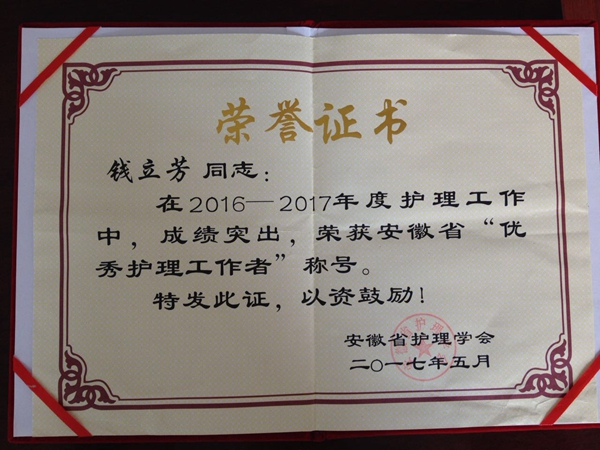 荣誉证书
钱立芳 同志：
在2016—2017年度护理工作
中，成绩突出，荣获安徽省“优
秀护理工作者”称号。
特发此证，以资鼓励！
安徽省护理学会
二〇一七年五月